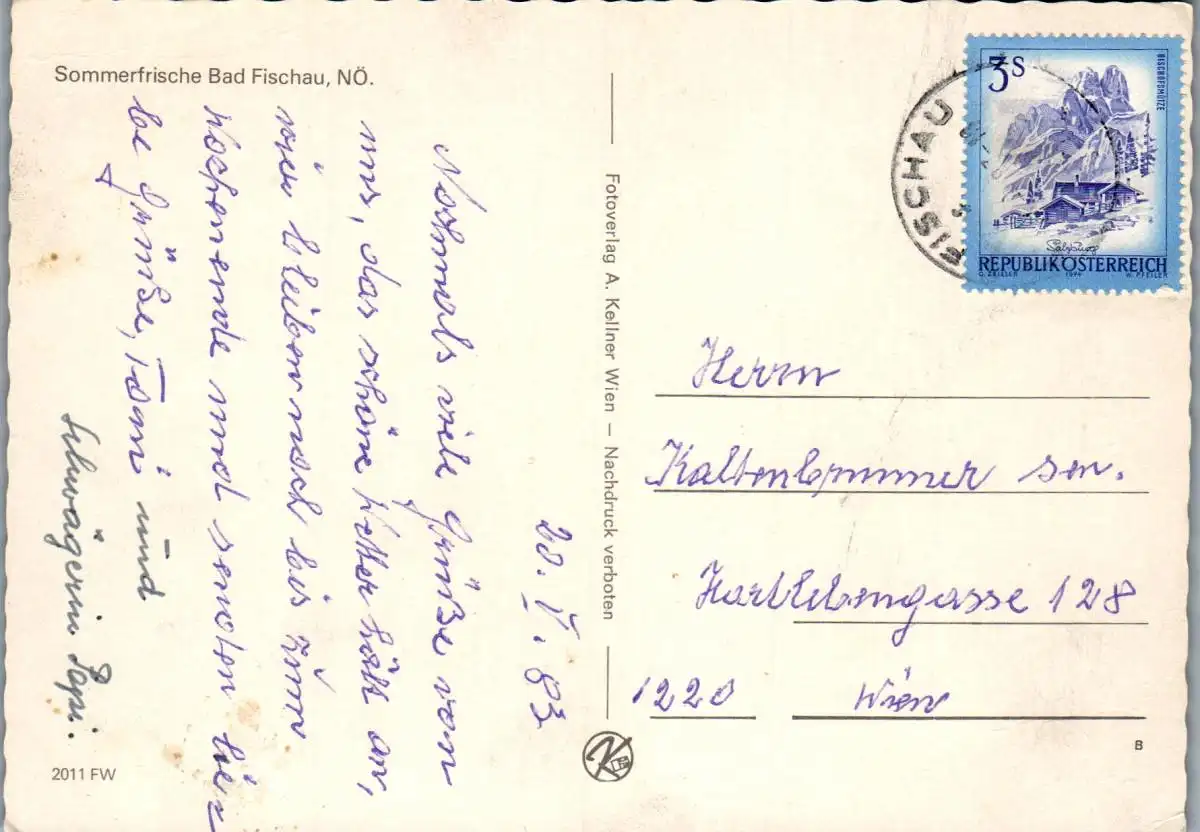 Sommerfrische Bad Fischau, NÖ.
20. V. 83
Nochmals viele Grüße von
uns, das schöne Wetter hält an,
wir bleiben noch bis zum
Wochenende und senden lie-
be Grüße, Toni und
Schwägerin Pepi.
2011 FW
Fotoverlag A. Kellner Wien – Nachdruck verboten
FISCHAU
3S
BISCHOFSMÜTZE
Salzburg
REPUBLIK ÖSTERREICH
O. ZEILLER 1974 W. PFEILER
Herrn
Kaltenbrunner sen.
Hartlebengasse 128
1220 Wien
B